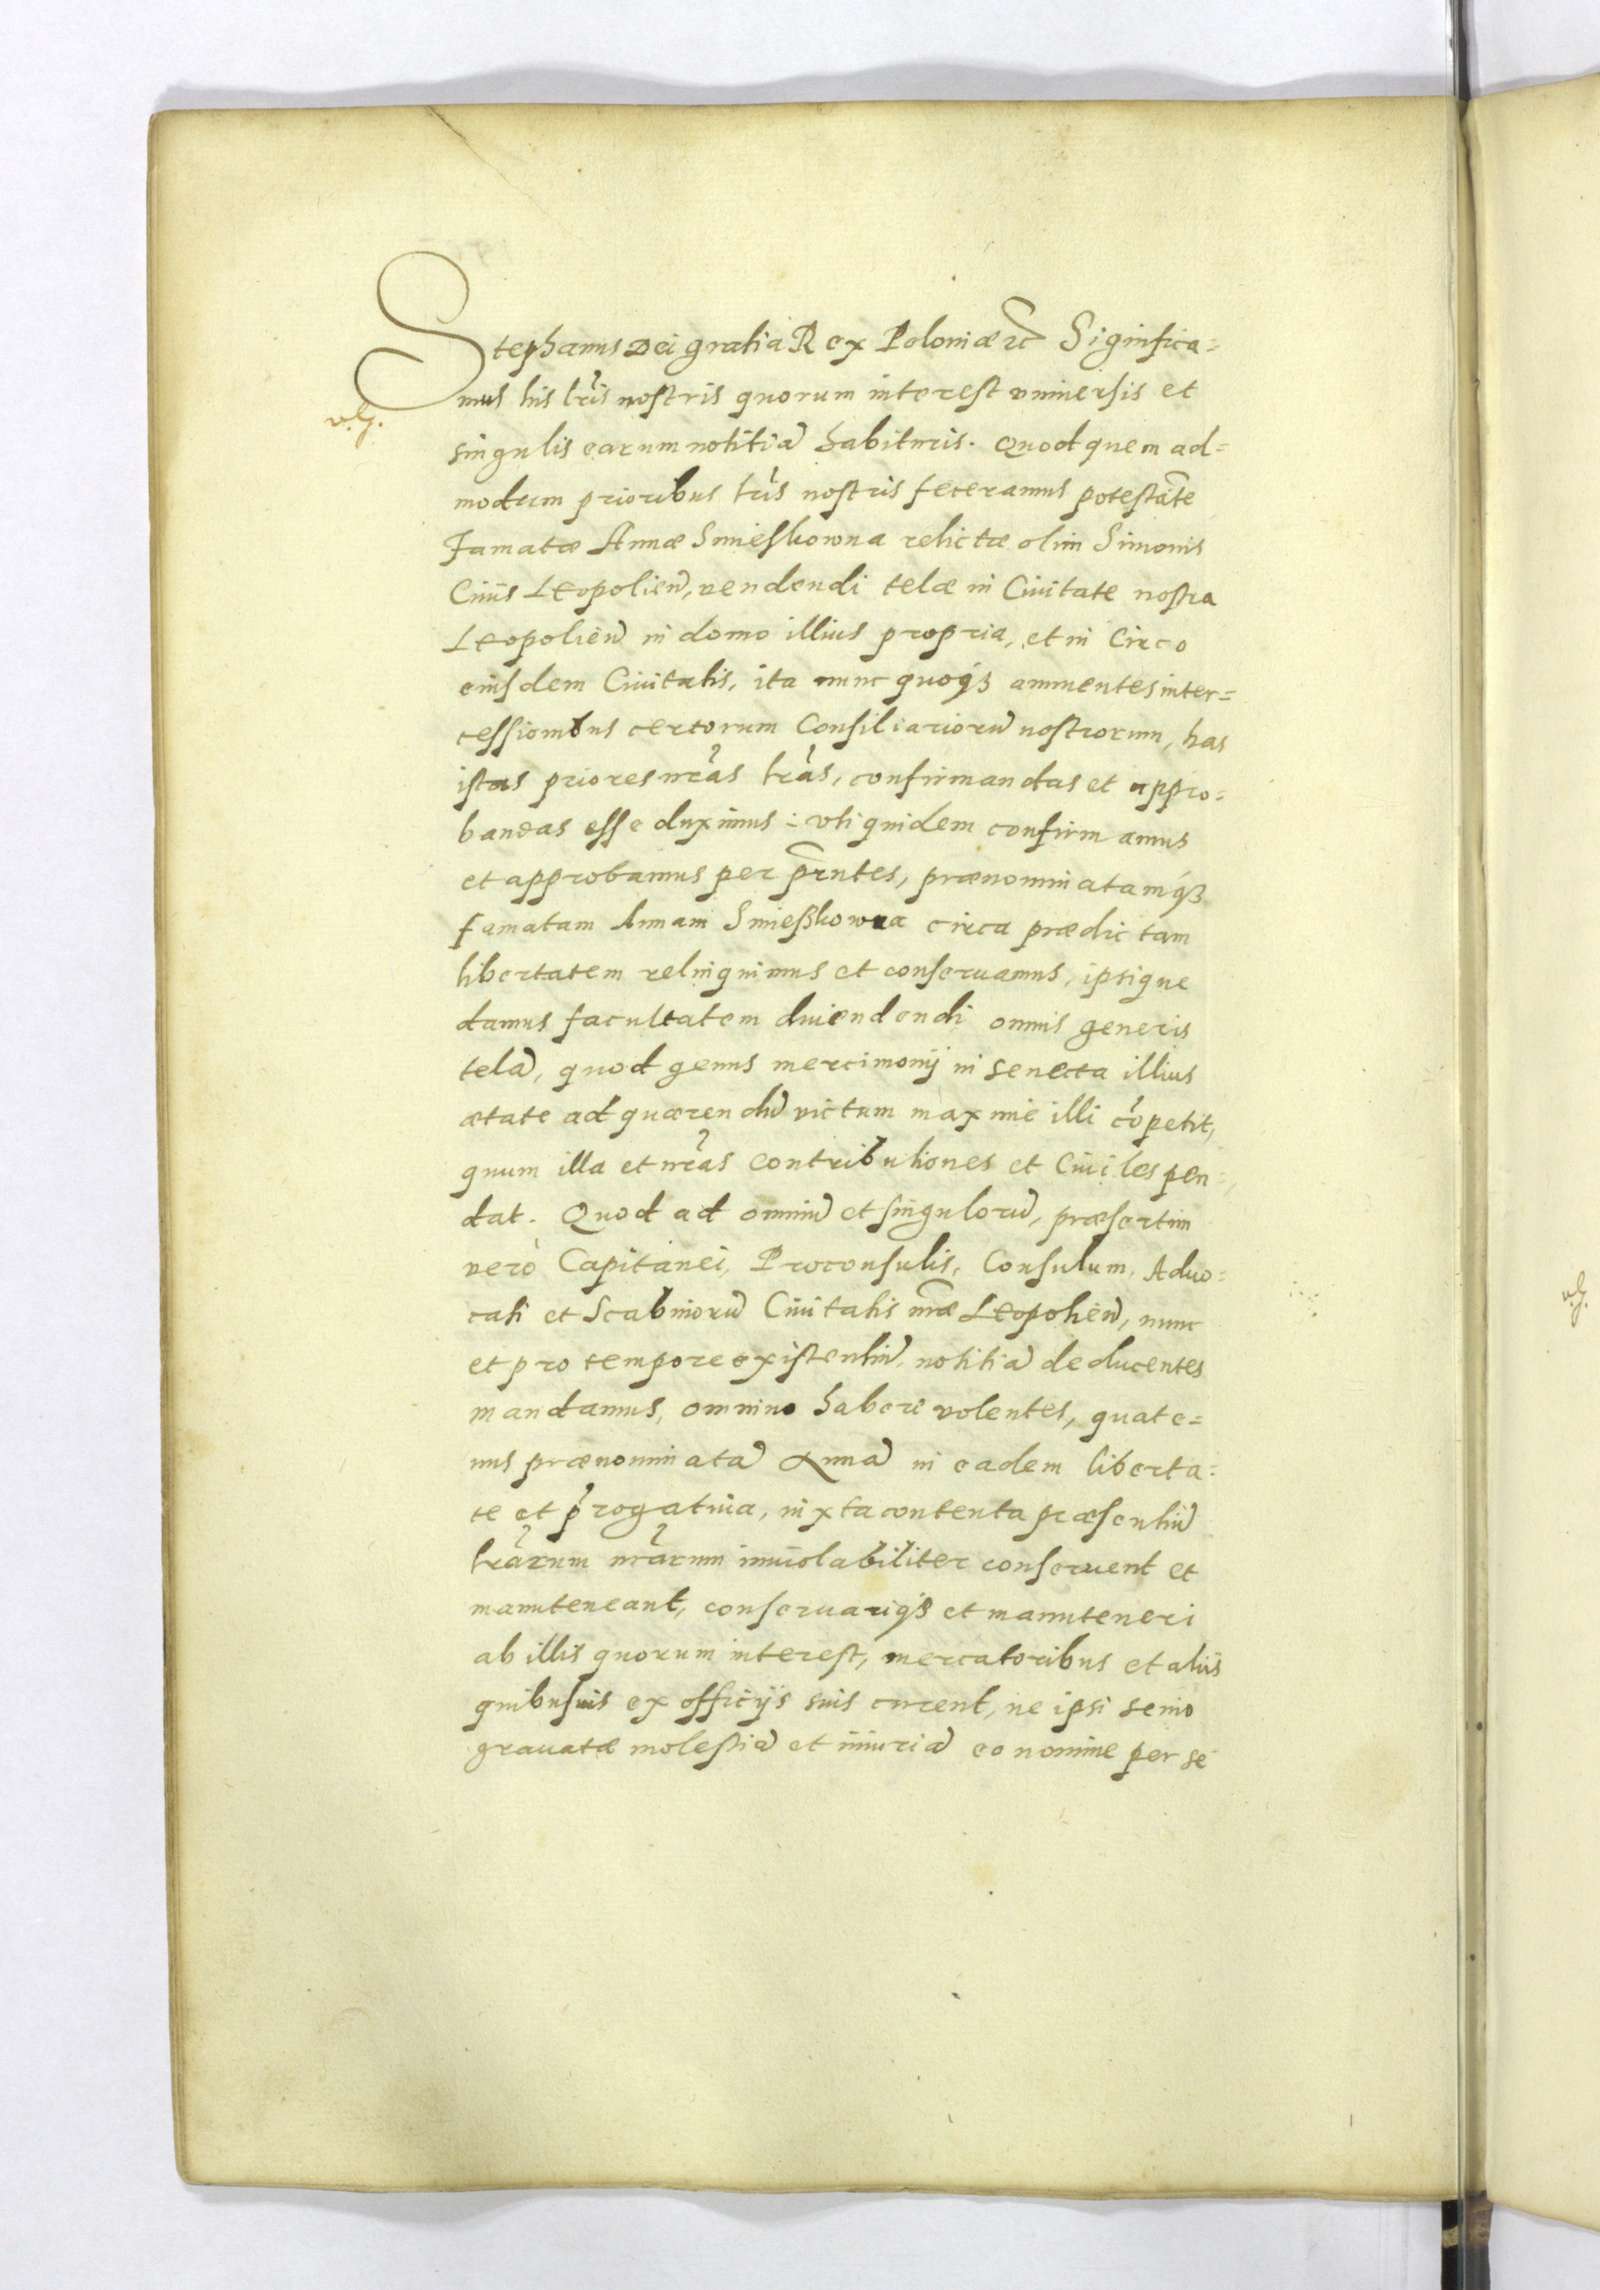 Stephanus Dei gratia Rex Poloniæ &c̃ Significa=
mus his lr̃is nostris quorum interest vniuersis et
singulis earum notitiã habituris. Quod quem ad=
modum prioribus lr̃is nostris feceramus potestãte
Famatæ Annæ Smieskowna relictæ olim Simonis
Ciuis Leopolien̄, vendendi telæ in Ciuitate nostra
Leopolien̄ in domo illius propria, et in Circo
eiusdem Ciuitatis, ita nunc quoqȝ annuentes inter=
cessionibus certorum Consiliariorũ nostrorum, has
istas priores nr̃as lr̃as, confirmandas et appro=
bandas esse duximus: vti quidem confirmamus
et approbamus per pr̃ntes, prænominatamqȝ
famatam Annam Smieskowna circa prædictam
libertatem relinquimus et conseruamus, ipsique
damus facultatem diuendendi omnis generis
telã, quod genus mercimonij in senecta illius
ætate ad quærendũ victum maxime illi cõpetit,
quum illa et nr̃as contributiones et Ciuiles pen=
dat. Quod ad omniũ et singulorũ, præsertim
verò Capitanei, Proconsulis, Consulum, Aduo=
cati et Scabinorũ Ciuitatis nr̃æ Leopolien̄, nunc
et pro tempore existentiũ, notitiã deducentes
mandamus, omnino habere volentes, quate=
nus prænominatã Annã in eadem liberta=
te et p̃rogatiua, iuxta contenta præsentiũ
lr̃arum nr̃arum inuiolabiliter conseruent et
manuteneant, conseruariqȝ et manuteneri
ab illis quorum interest, mercatoribus et aliis
quibusuis ex officijs suis curent, ne ipsi senio
grauatæ molestiã et iniuriã eo nomine per se